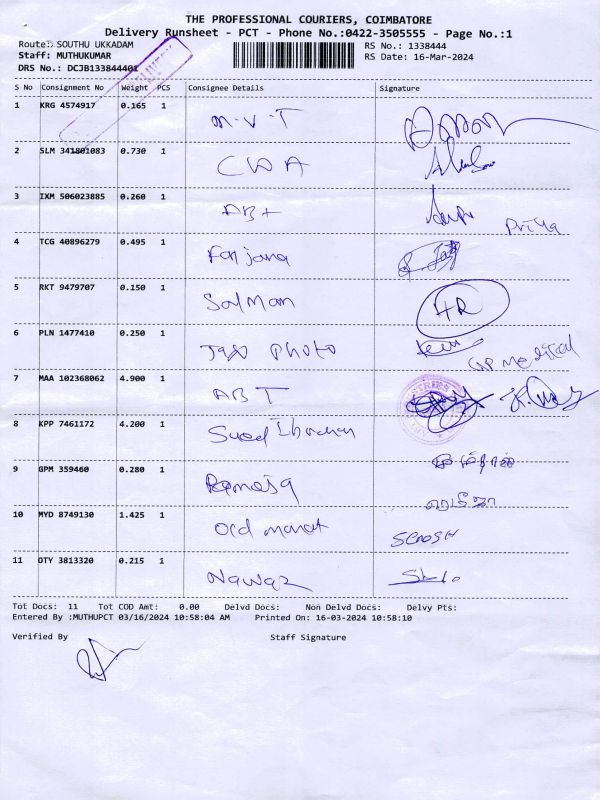 THE PROFESSIONAL COURIERS, COIMBATORE
Delivery Runsheet - PCT - Phone No.:0422-3505555 - Page No.:1
Route: SOUTHU UKKADAM RS No.: 1338444
Staff: MUTHUKUMAR RS Date: 16-Mar-2024
DRS No.: DCJB133844401
S No Consignment No Weight PCS Consignee Details Signature
1 KRG 4574917 0.165 1 M.V.T
2 SLM 341801083 0.730 1
3 IXM 506023885 0.260 1 Priya
4 TCG 40896279 0.495 1 Farjana
5 RKT 9479707 0.150 1 Salman HR
6 PLN 1477410 0.250 1 Photo GP Medical
7 MAA 102368062 4.900 1 ABT
8 KPP 7461172 4.200 1 Syed Ibrahim
9 GPM 359460 0.280 1
10 MYD 8749130 1.425 1 Old
11 OTY 3813320 0.215 1 Nawaz
Tot Docs: 11 Tot COD Amt: 0.00 Delvd Docs: Non Delvd Docs: Delvy Pts:
Entered By :MUTHUPCT 03/16/2024 10:58:04 AM Printed On: 16-03-2024 10:58:10
Verified By Staff Signature